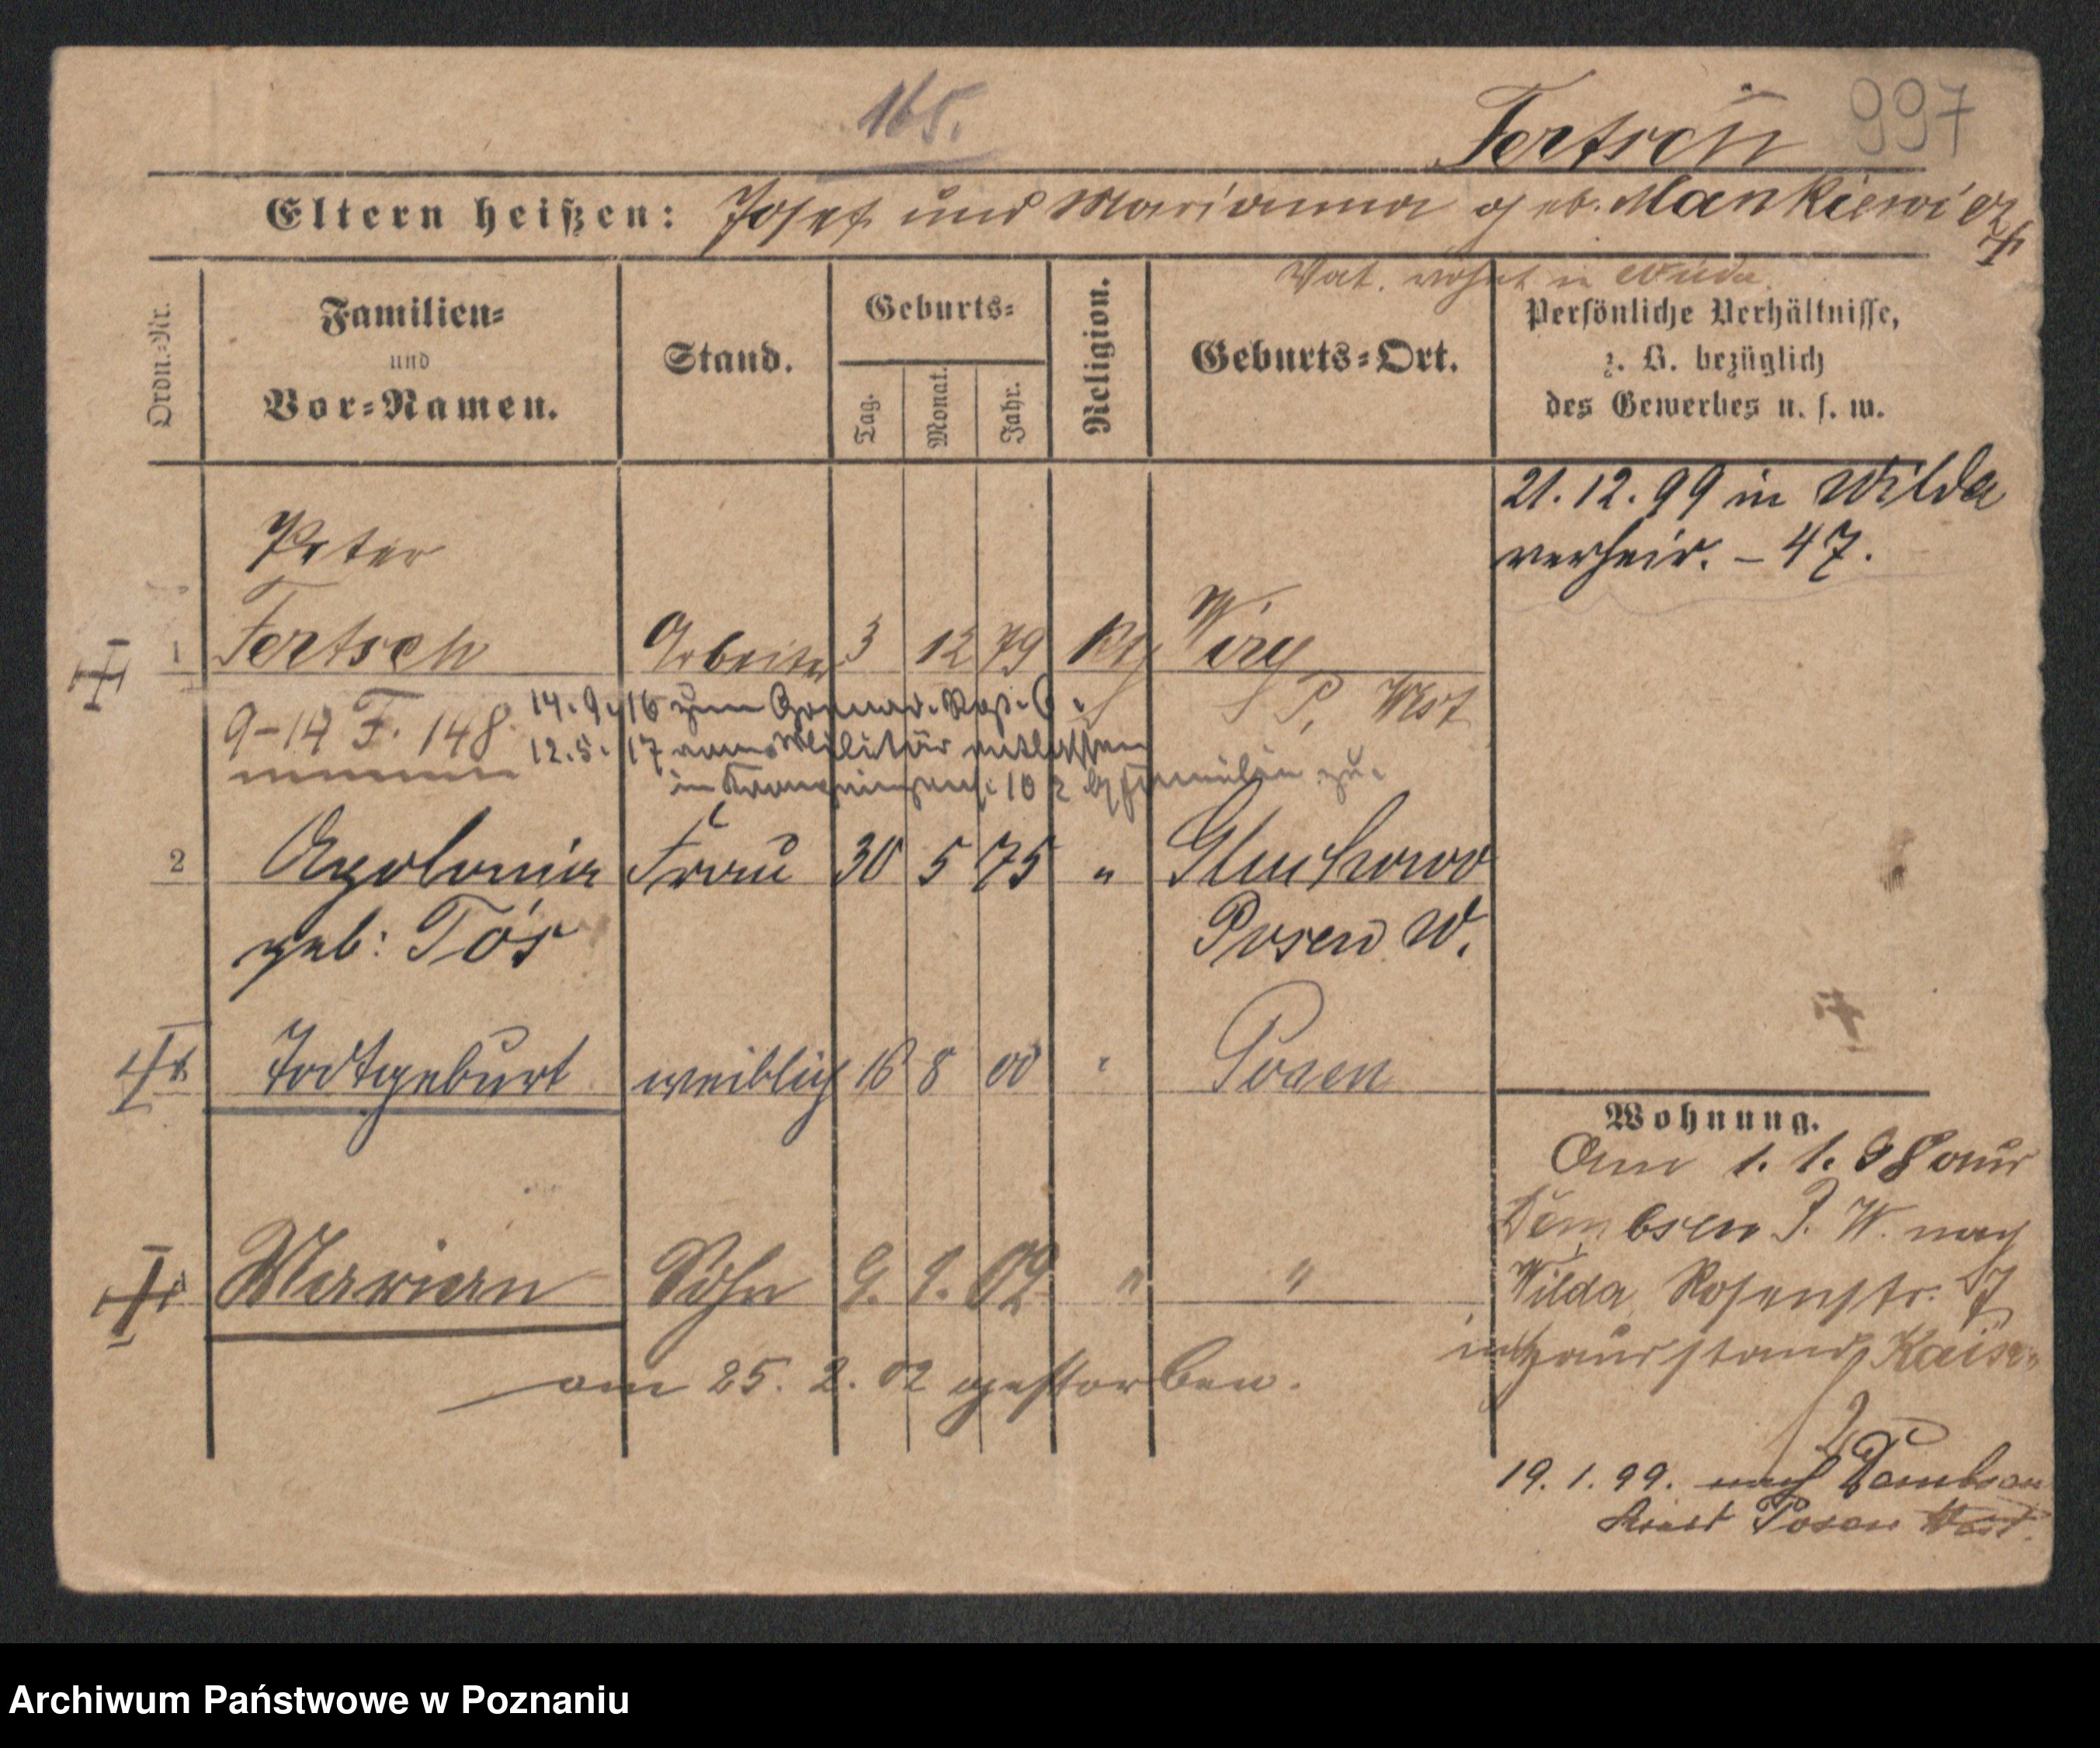 165.
Fertsch 997
Eltern heißen: Josef und Marianna geb. Mankiewicz
Vat. wohnt in Wilda.
Ordn.-Nr.
Familien- und Vor-Namen.
Stand.
Geburts-
Tag.
Monat.
Jahr.
Religion.
Geburts-Ort.
Persönliche Verhältnisse,
z. B. bezüglich
des Gewerbes u. s. w.
21.12.99 in Wilda
verheir. - 47.
Peter
1 Fertsch Arbeiter 3 12 79 kth Wiry
P. West
9-14 F. 148.
14.9.16 zum
12.5.17 vom Militär entlassen
2 Apolonia Frau 30 5 75 " Gluchowo
geb: Tós Posen W.
Todtgeburt weiblich 16 8 00 " Posen
Maryian Sohn 9. 1. 02 " "
am 25. 2. 02 gestorben.
Wohnung.
Am 1. 1. 98 aus
Dembsen P. W. nach
Wilda Rosenstr.
19. 1. 99. nach Dembsen
Kreis Posen West.
Archiwum Państwowe w Poznaniu